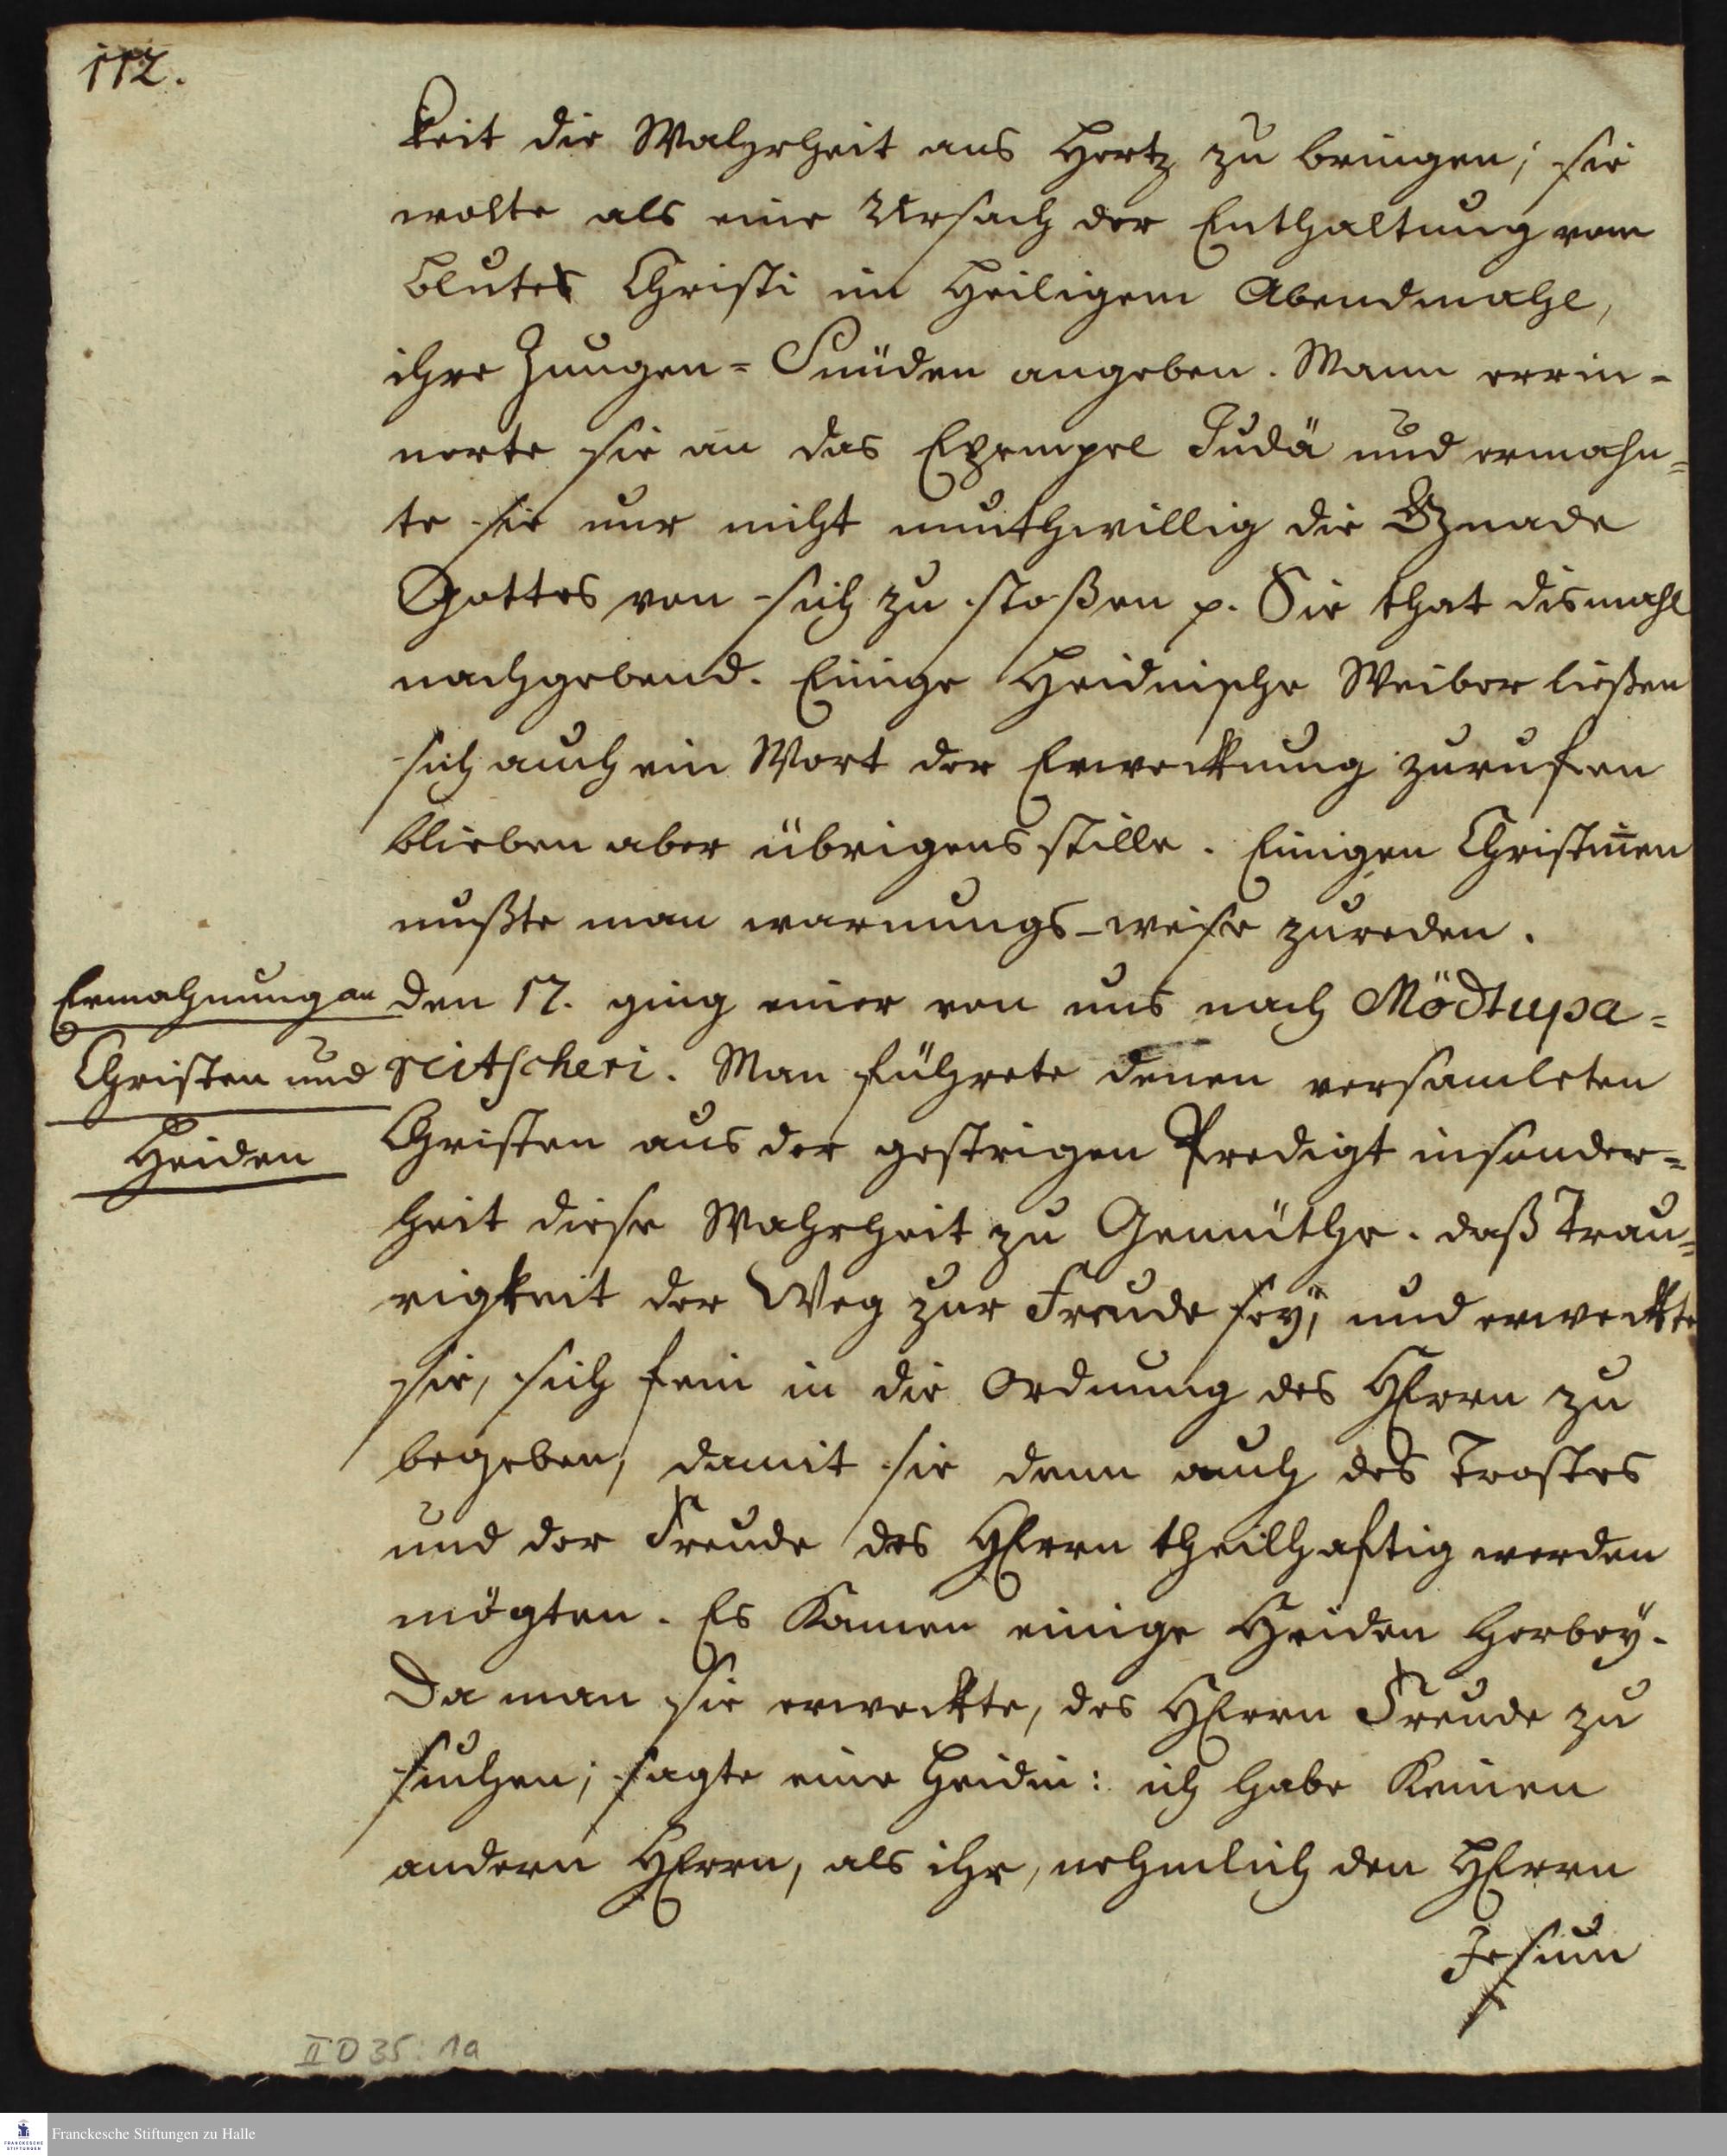 112.
keit die Wahrheit ans Hertz zu bringen; sie
wolte als eine Ursach der Enthaltung vom
Blutes Christi im Heiligem Abendmahl,
ihre Zungen-Sünden angeben. Mann errin-
nerte sie an das Exempel Judä und ermahn-
te sie nur nicht muthwillig die Gnade
Gottes von sich zu stoßen p. Sie that dismahl
nachgebend. Einige Heidnische Weiber ließen
sich auch ein Wort der Erweckung zurufen
blieben aber übrigens stille. Einigen Christiñen
mußte man warnungs-weise zureden.
Ermahnung an
Christen und
Heiden
den 17. ging einer von uns nach Mödtupa-
reitscheri. Man führete denen versamleten
Christen aus der gestrigen Predigt insonder-
heit diese Wahrheit zu Gemüthe. daß Trau-
rigkeit der Weg zur Freude seÿ, und erweckte
sie, sich fein in die Ordnung des HErrn zu
begeben, damit sie denn auch des Trostes
und der Freude des HErrn theilhaftig werden
mögten. Es Kamen einige Heiden herbeÿ.
Da man sie erweckte, des HErrn Freude zu
suchen; sagte eine Heidin: ich habe Keinen
andern HErrn, als ihr, nehmlich den HErrn
Jesum
II D 35: 1a
Franckesche Stiftungen zu Halle
FRANCKESCHE
STIFTUNGEN